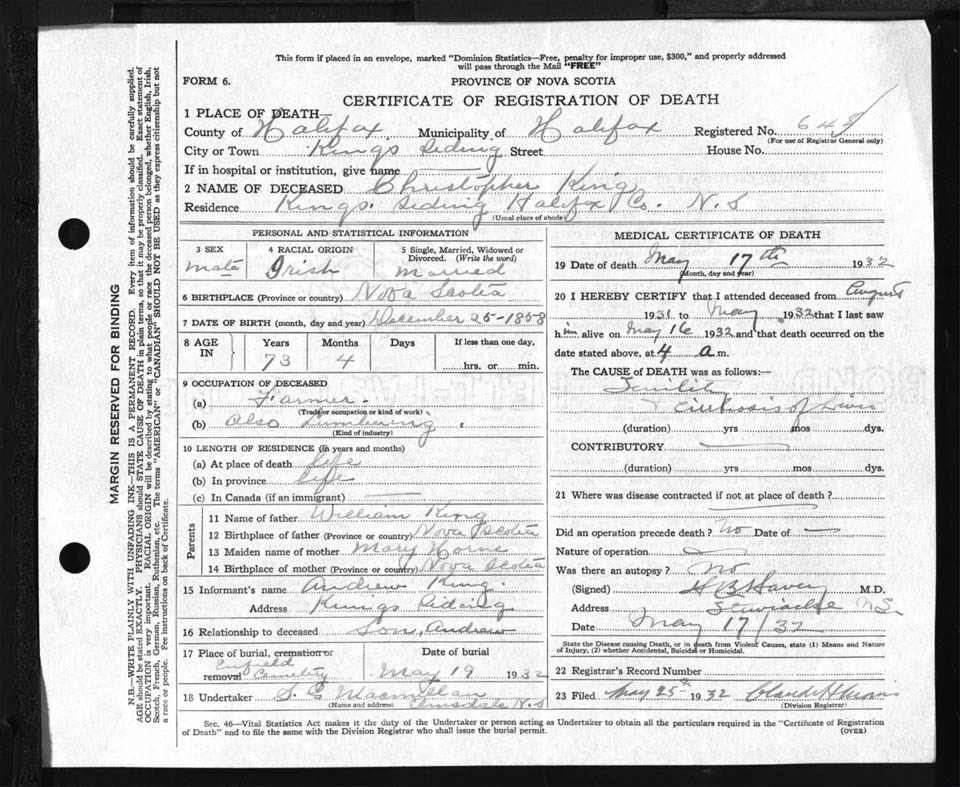 This form if placed in an envelope, marked "Dominion Statistics—Free, penalty for improper use, $300," and properly addressed
will pass through the Mail "FREE"
FORM 6.
PROVINCE OF NOVA SCOTIA
CERTIFICATE OF REGISTRATION OF DEATH
1 PLACE OF DEATH
County of Halifax Municipality of Halifax Registered No. 648
(For use of Registrar General only)
City or Town Kings Siding Street House No.
If in hospital or institution, give name
2 NAME OF DECEASED Christopher King
Residence Kings Siding Halifax Co. N.S
(Usual place of abode)
PERSONAL AND STATISTICAL INFORMATION
3 SEX
Male
4 RACIAL ORIGIN
Irish
5 Single, Married, Widowed or Divorced. (Write the word)
Married
6 BIRTHPLACE (Province or country) Nova Scotia
7 DATE OF BIRTH (month, day and year) December 25-1858
8 AGE IN
Years Months Days If less than one day,
73 4 hrs. or min.
9 OCCUPATION OF DECEASED
(a) Farmer
(Trade or occupation or kind of work)
(b) Also Lumbering
(Kind of industry)
10 LENGTH OF RESIDENCE (in years and months)
(a) At place of death life
(b) In province life
(c) In Canada (if an immigrant)
Parents
11 Name of father William King
12 Birthplace of father (Province or country) Nova Scotia
13 Maiden name of mother Mary Horne
14 Birthplace of mother (Province or country) Nova Scotia
15 Informant's name Andrew King
Address Kings Siding
16 Relationship to deceased Son, Andrew
17 Place of burial, cremation or removal Enfield Cemetery
Date of burial
May 19 1932
18 Undertaker S. Macmillan
(Name and address) Elmsdale N.S
MEDICAL CERTIFICATE OF DEATH
19 Date of death May 17th 1932
(Month, day and year)
20 I HEREBY CERTIFY that I attended deceased from August
1931 to May 1932 that I last saw
him alive on May 16 1932 and that death occurred on the
date stated above, at 4 a.m.
The CAUSE of DEATH was as follows:—
Senility
+ Cirrhosis of Liver
(duration) yrs mos dys.
CONTRIBUTORY
(duration) yrs mos dys.
21 Where was disease contracted if not at place of death?
Did an operation precede death? No Date of
Nature of operation
Was there an autopsy? No
(Signed) M.D.
Address Stewiacke N.S.
Date May 17/32
State the Disease causing Death, or in death from Violent Causes, state (1) Means and Nature
of Injury, (2) whether Accidental, Suicidal or Homicidal.
22 Registrar's Record Number
23 Filed May 25th 1932
(Division Registrar)
Sec. 46—Vital Statistics Act makes it the duty of the Undertaker or person acting as Undertaker to obtain all the particulars required in the "Certificate of Registration
of Death" and to file the same with the Division Registrar who shall issue the burial permit.
(OVER)
MARGIN RESERVED FOR BINDING
N.B.—WRITE PLAINLY WITH UNFADING INK—THIS IS A PERMANENT RECORD. Every item of information should be carefully supplied.
AGE should be stated EXACTLY. PHYSICIANS should STATE CAUSE OF DEATH in plain terms, so that it may be properly classified. Exact statement of
OCCUPATION is very important. RACIAL ORIGIN will be described by stating to what people or race the deceased person belonged, whether English, Irish,
Scotch, French, German, Russian, Ruthenian, etc. The terms "AMERICAN" or "CANADIAN" SHOULD NOT BE USED as they express citizenship but not
a race or people. See instructions on back of Certificate.